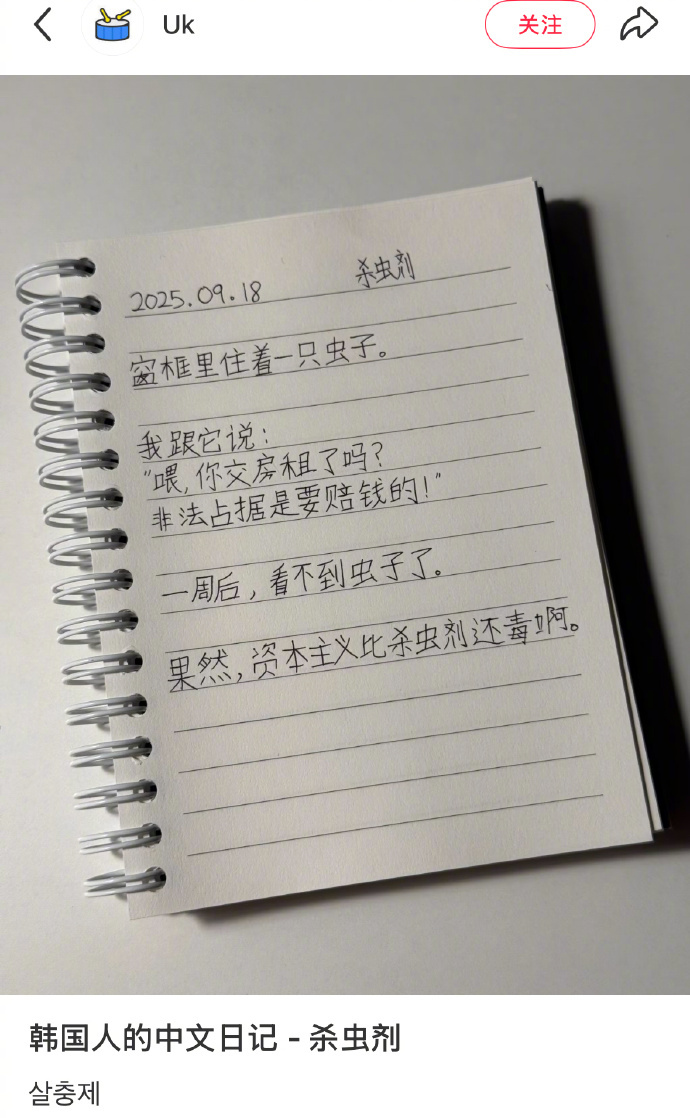 Uk
关注
2025.09.18
杀虫剂
窗框里住着一只虫子。
我跟它说：
“喂,你交房租了吗？
非法占据是要赔钱的！”
一周后，看不到虫子了。
果然,资本主义比杀虫剂还毒啊。
韩国人的中文日记 - 杀虫剂
살충제